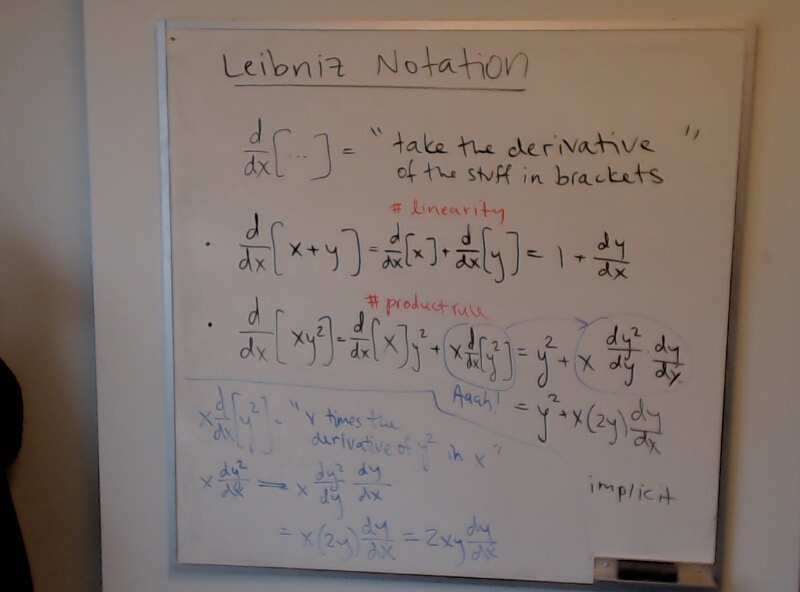 Leibniz Notation
d/dx [...] = " take the derivative "
of the stuff in brackets
# linearity
· d/dx [x + y] = d/dx [x] + d/dx [y] = 1 + dy/dx
# product rule
· d/dx [xy²] = d/dx [x] y² + x d/dx [y²] = y² + x dy²/dy · dy/dx
Aaah!
= y² + x(2y) dy/dx
x d/dx [y²] = "x times the
derivative of y² in x"
x dy²/dx = x dy²/dy dy/dx
= x(2y) dy/dx = 2xy dy/dx
implicit